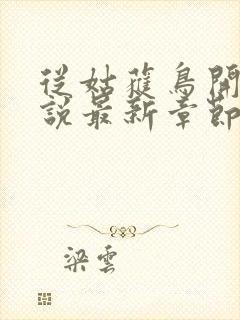 從姑蘿鳥開
說最新章節
梁雲